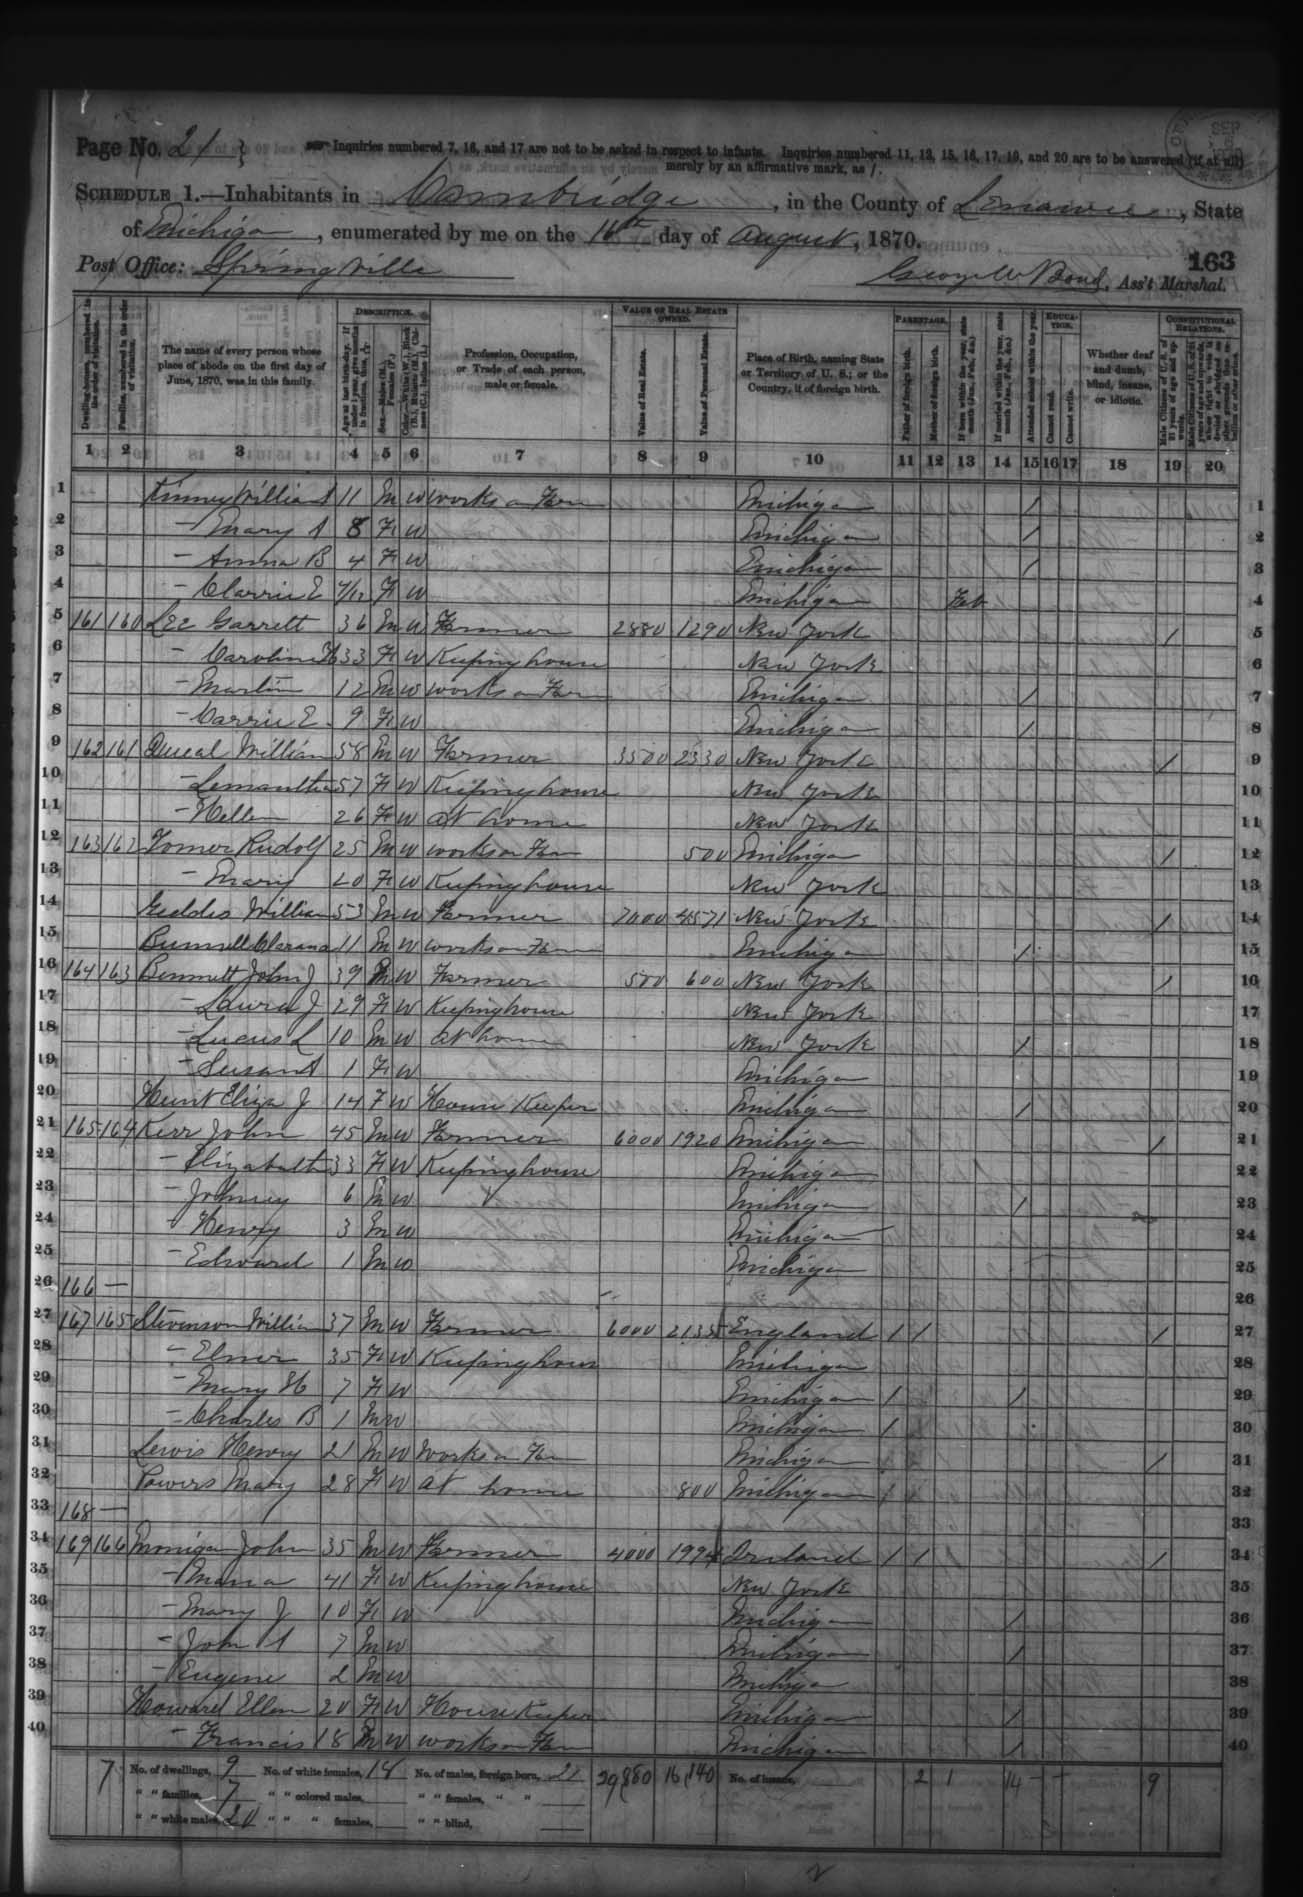 Page No. 21
Inquiries numbered 7, 16, and 17 are not to be asked in respect to infants. Inquiries numbered 11, 12, 15, 16, 17, 19, and 20 are to be answered (if at all) merely by an affirmative mark, as /.
SCHEDULE 1.—Inhabitants in Cambridge, in the County of Lenawee, State
of Michigan, enumerated by me on the 16th day of August, 1870.
163
Post Office: Springville
George W Bond, Ass't Marshal.
DESCRIPTION.
VALUE OF REAL ESTATE OWNED.
PARENTAGE.
EDUCATION.
CONSTITUTIONAL RELATIONS.
Dwelling-houses, numbered in the order of visitation.
Families, numbered in the order of visitation.
The name of every person whose place of abode on the first day of June, 1870, was in this family.
Profession, Occupation, or Trade of each person, male or female.
Value of Real Estate.
Value of Personal Estate.
Place of Birth, naming State or Territory of U. S.; or the Country, if of foreign birth.
Father of foreign birth.
Mother of foreign birth.
Attended school within the year.
Cannot read.
Cannot write.
Whether deaf and dumb, blind, insane, or idiotic.
1 2 3 4 5 6 7 8 9 10 11 12 13 14 15 16 17 18 19 20
1 Kinney William A 11 M W Works on Farm Michigan / 1
2 — Mary A 8 F W Michigan / 2
3 — Anna B 4 F W Michigan / 3
4 — Clarrie E 4/12 F W Michigan Feb 4
5 161 160 Lee Garrett 36 M W Farmer 2880 1290 New York / 5
6 — Caroline H 33 F W Keeping house New York 6
7 — Martin 12 M W works on Farm Michigan / 7
8 — Carrie E 9 F W Michigan / 8
9 162 161 Queal William 58 M W Farmer 3500 2330 New York / 9
10 — 57 F W Keeping house New York 10
11 — Hellen 26 F W at home New York 11
12 163 162 Rudolf 25 M W works on Farm 500 Michigan / 12
13 — Mary 20 F W Keeping house New York 13
14 Geddes William 53 M W Farmer 7000 4571 New York / 14
15 11 M W works on Farm Michigan / 15
16 164 163 Bennett John J 39 M W Farmer 500 600 New York / 16
17 — Laura J 29 F W Keeping house New York 17
18 — Lucus L 10 M W at home New York / 18
19 — Susan A 1 F W Michigan 19
20 Hunt Eliza J 14 F W House Keeper Michigan / 20
21 165 164 Kerr John 45 M W Farmer 6000 1920 Michigan / 21
22 — Elizabeth 33 F W Keeping house Michigan 22
23 — Johney 6 M W Michigan / 23
24 — Henry 3 M W Michigan 24
25 — Edward 1 M W Michigan 25
26 166 — 26
27 167 165 Stevenson William 37 M W Farmer 6000 2135 England / / / 27
28 — Elner 35 F W Keeping house Michigan 28
29 — Mary H 7 F W Michigan / / 29
30 — Charles B 1 M W Michigan / 30
31 Lewis Henry 21 M W Works on Farm Michigan / 31
32 Powers Mary 28 F W at home 800 Michigan / / 32
33 168 — 33
34 169 166 Monigan John 35 M W Farmer 4000 1994 Ireland / / / 34
35 — Maria 41 F W Keeping house New York 35
36 — Mary J 10 F W Michigan / 36
37 — John A 7 M W Michigan / 37
38 — Eugene 2 M W Michigan 38
39 Howard Ellen 20 F W House Keeper Michigan / 39
40 — Francis 18 M W works on Farm Michigan / 40
7 No. of dwellings, 9 No. of white females, 18 No. of males, foreign born, 2 29,880 16,140 No. of insane, 2 1 14 9
" " families, 7 " " colored males, " " females, " "
" " white males, 20 " " " females, " " blind,